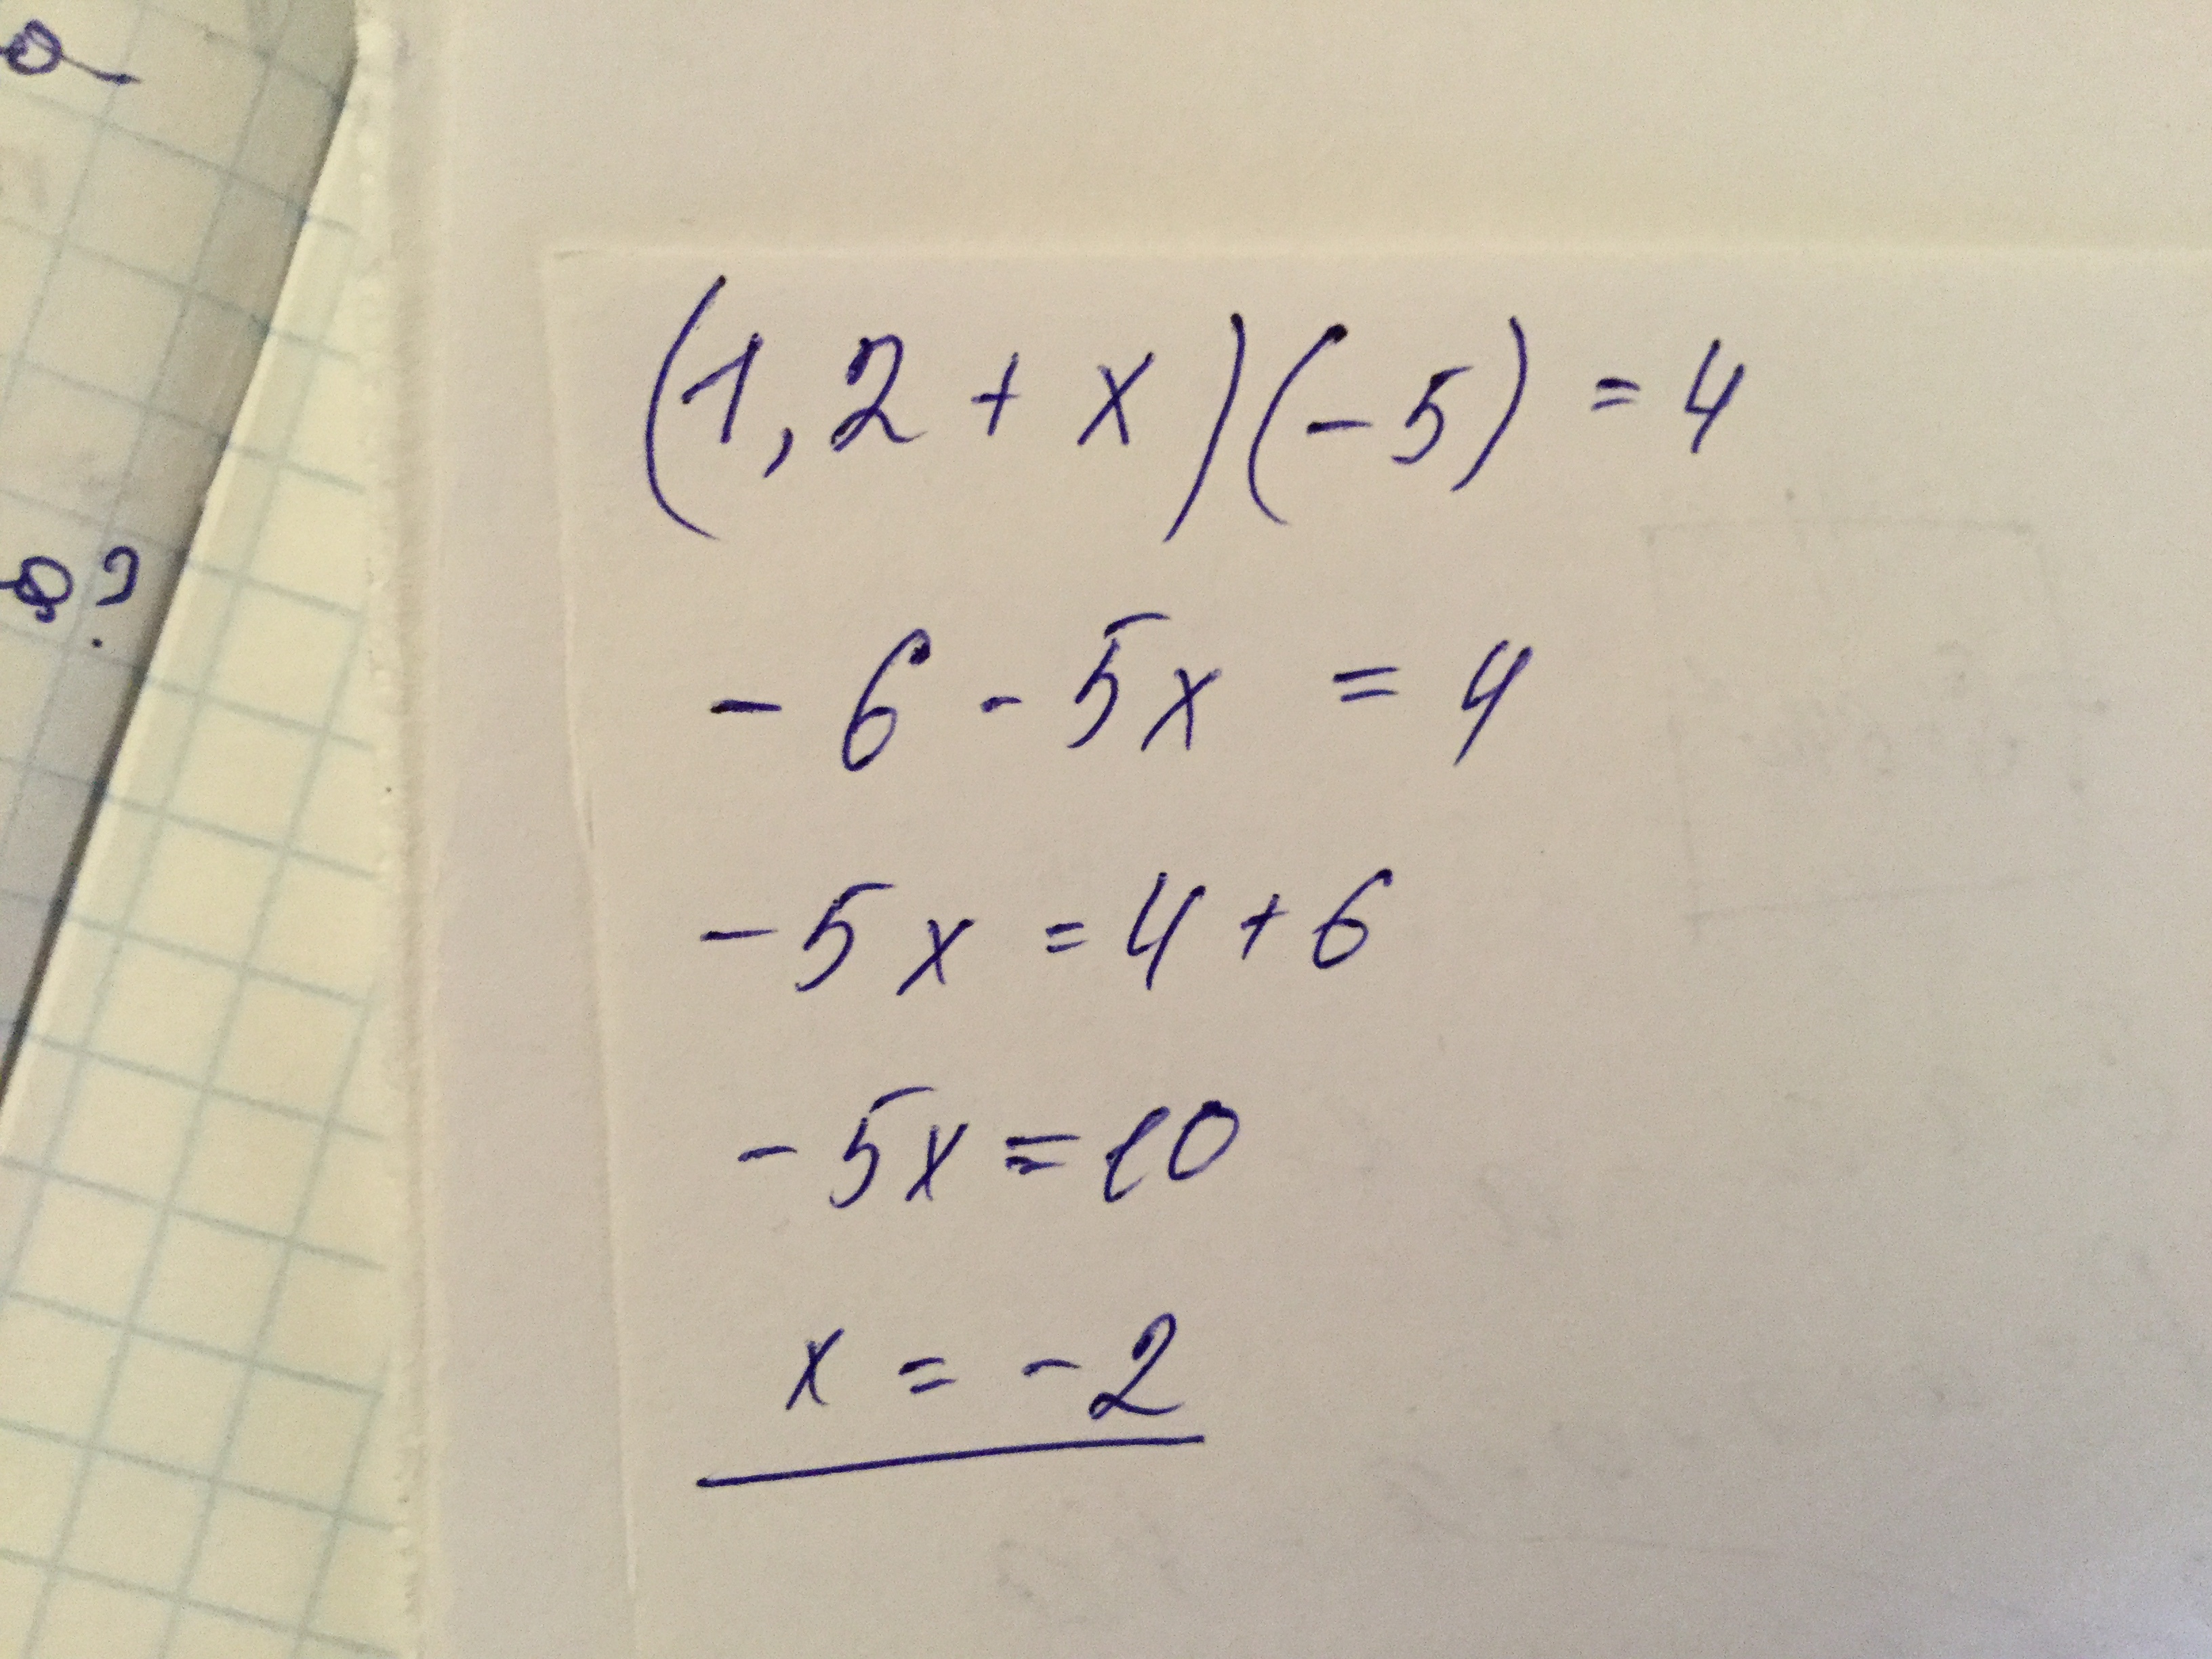 (1,2 + x)(-5) = 4
- 6 - 5x = 4
- 5x = 4 + 6
- 5x = 10
x = - 2